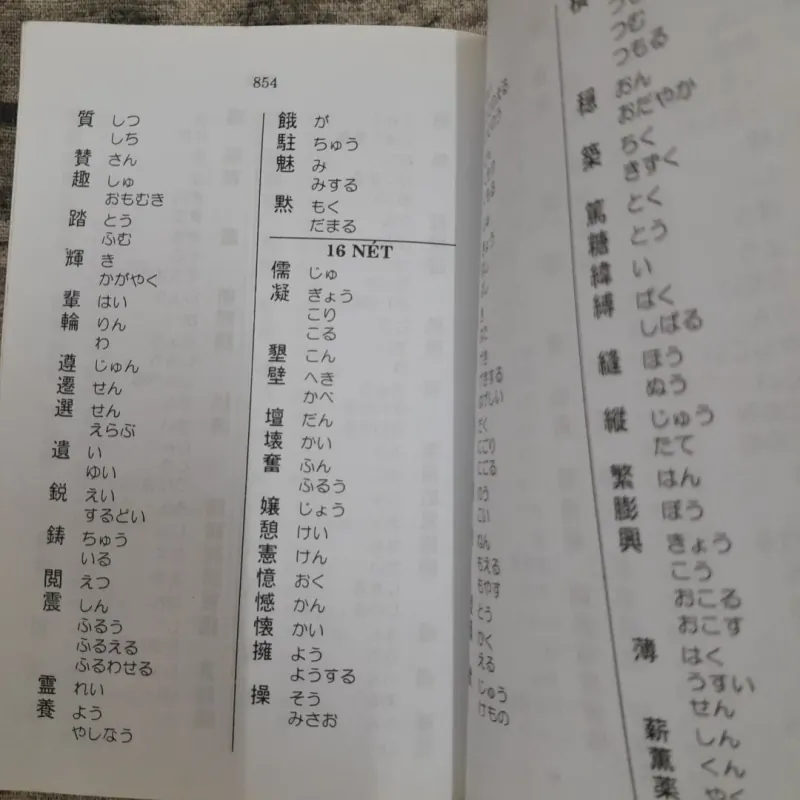 854
質 しつ
しち
賛 さん
趣 しゅ
おもむき
踏 とう
ふむ
輝 き
かがやく
輩 はい
輪 りん
わ
遵 じゅん
遷 せん
選 せん
えらぶ
遺 い
ゆい
鋭 えい
するどい
鋳 ちゅう
いる
閲 えつ
震 しん
ふるう
ふるえる
ふるわせる
霊 れい
養 よう
やしなう
餓 が
駐 ちゅう
魅 み
みする
黙 もく
だまる
16 NÉT
儒 じゅ
凝 ぎょう
こり
こる
墾 こん
壁 へき
かべ
壇 だん
壊 かい
奮 ふん
ふるう
嬢 じょう
憩 けい
憲 けん
憶 おく
憾 かん
懐 かい
擁 よう
ようする
操 そう
みさお
つむ
つもる
穏 おん
おだやか
築 ちく
きずく
篤 とく
糖 とう
緯 い
縛 ばく
しばる
縫 ほう
ぬう
縦 じゅう
たて
繁 はん
膨 ぼう
興 きょう
こう
おこる
おこす
薄 はく
うすい
せん
薪 しん
薫 くん
薬 やく